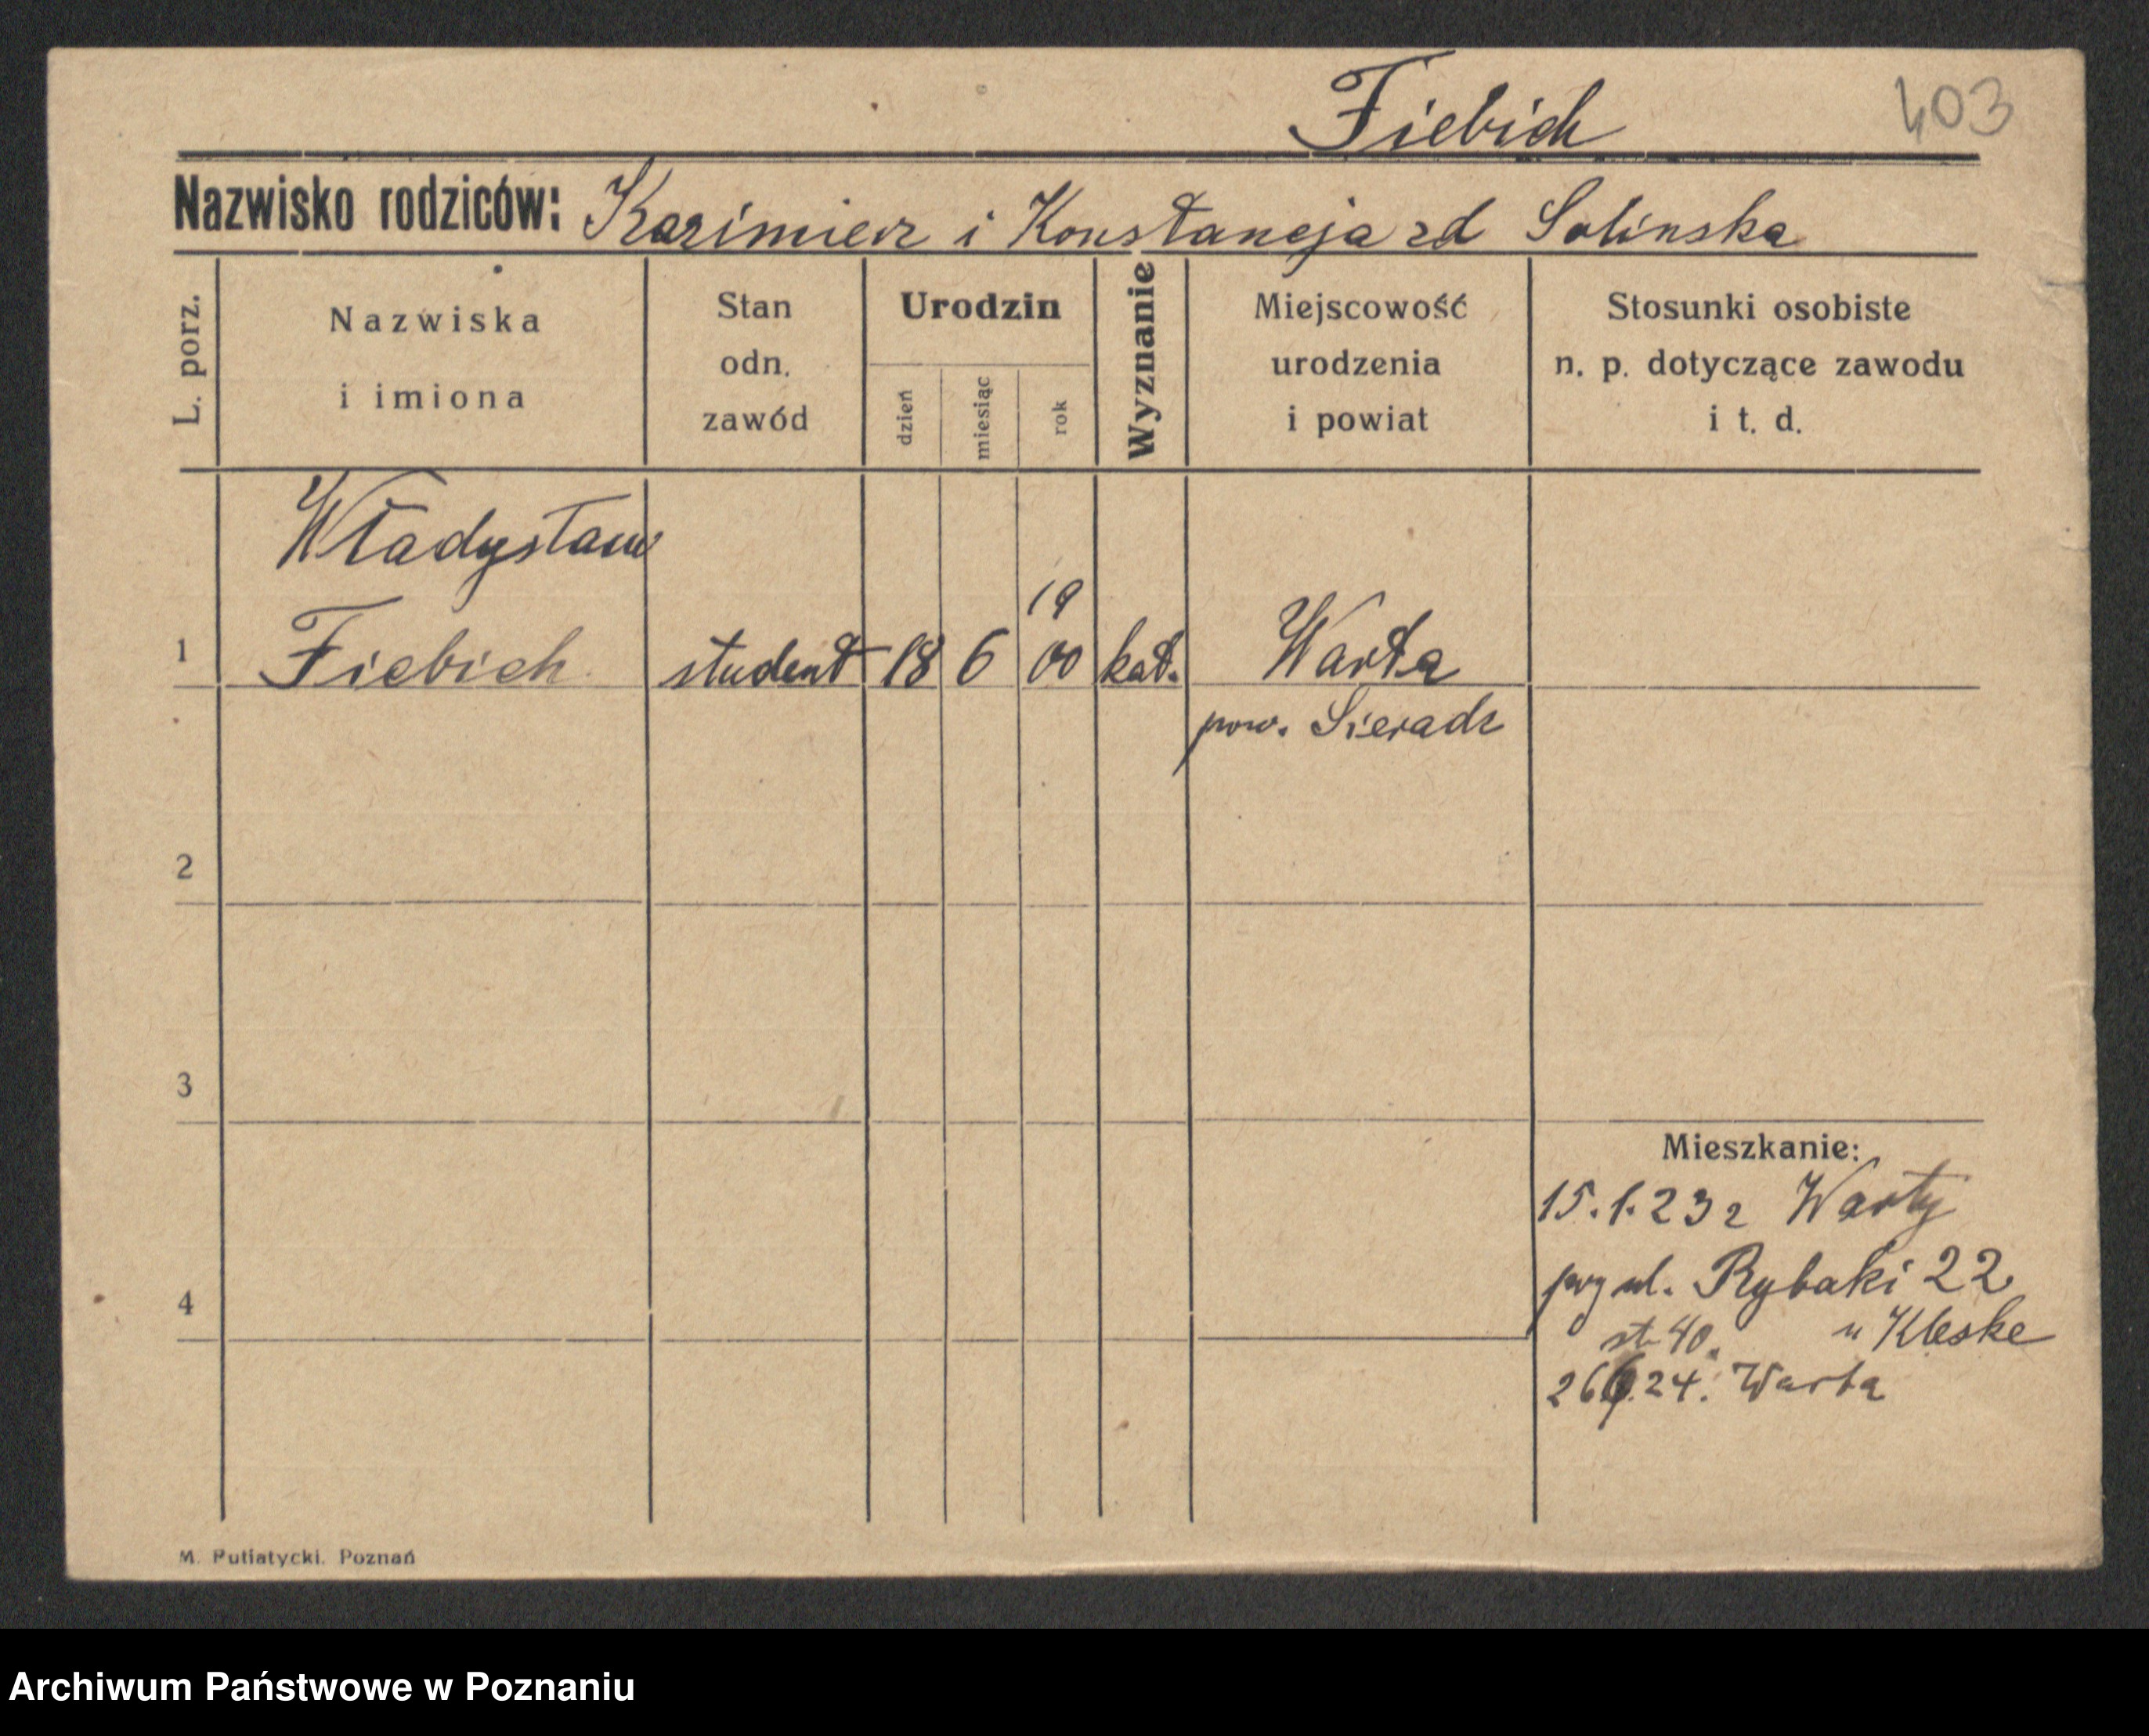 Fiebich
403
Nazwisko rodziców: Kazimierz i Konstancja zd Solinska
L. porz.
Nazwiska
i imiona
Stan
odn.
zawód
Urodzin
dzień
miesiąc
rok
Wyznanie
Miejscowość
urodzenia
i powiat
Stosunki osobiste
n. p. dotyczące zawodu
i t. d.
Władysław
19
1 Fiebich student 18 6 00 kat. Warta
pow. Sieradz
2
3
Mieszkanie:
15.1.23 z Warty
4 przy ul. Rybaki 22
u Kleske
24. Warta
M. Putiatycki. Poznań
Archiwum Państwowe w Poznaniu